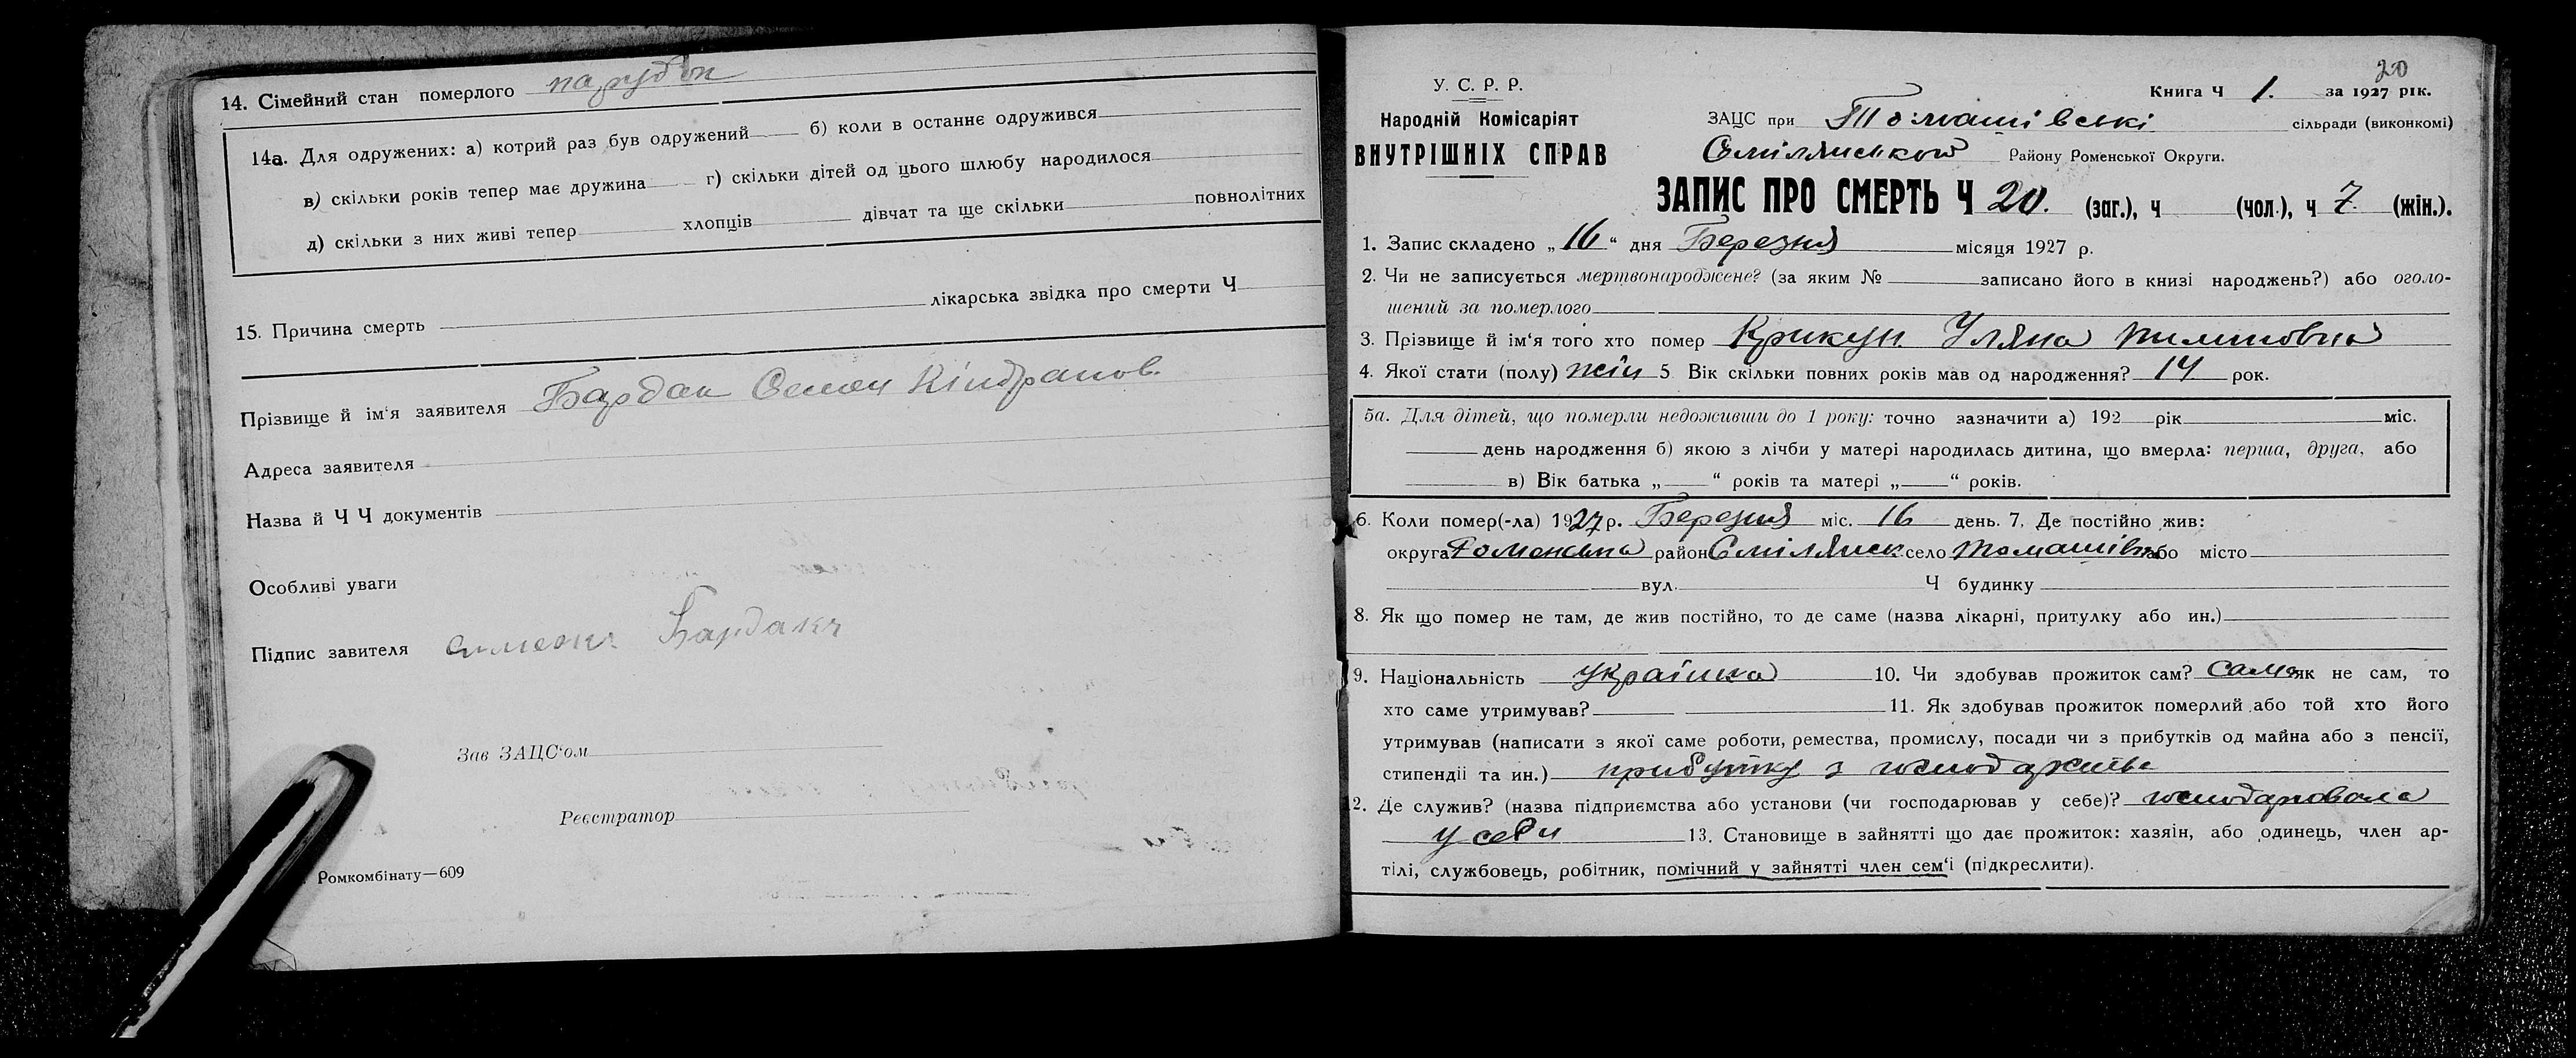 14. Сімейний стан померлого парубок
14а. Для одружених: а) котрий раз був одружений б) коли в останнє одружився
в) скільки років тепер має дружина г) скільки дітей од цього шлюбу народилося
д) скільки з них живі тепер хлопців дівчат та ще скільки повнолітних
15. Причина смерть лікарська звідка про смерти Ч
Прізвище й ім'я заявителя Бардак Семен Кіндратов.
Адреса заявителя
Назва й Ч Ч документів
Особливі уваги
Підпис завителя Бардакъ
Зав ЗАЦС'ом
Реєстратор
Ромкомбінату—609
20
У. С. Р. Р.
Книга Ч 1. за 1927 рік.
Народній Комісаріят
ВНУТРІШНІХ СПРАВ
ЗАЦС при Томашівські сільради (виконкомі)
Смілянськой Району Роменської Округи.
ЗАПИС ПРО СМЕРТЬ Ч 20. (заг.), ч (чол.), ч 7. (жін.).
1. Запис складено „16“ дня Березня місяця 1927 р.
2. Чи не записується мертвонароджене? (за яким № записано його в книзі народжень?) або оголо-
шений за померлого
3. Прізвище й ім'я того хто помер Крикун Уляна
4. Якої стати (полу) жін 5 Вік скільки повних років мав од народження? 14 рок.
5а. Для дітей, що померли недоживши до 1 року: точно зазначити а) 192 рік міс.
день народження б) якою з лічби у матері народилась дитина, що вмерла: перша, друга, або
в) Вік батька „ “ років та матері „ “ років.
6. Коли помер(-ла) 1927р. Березня міс. 16 день. 7. Де постійно жив:
округа Роменська район Смілянск село Томашівка або місто
вул. Ч будинку
8. Як що помер не там, де жив постійно, то де саме (назва лікарні, притулку або ин.)
9. Національність українка 10. Чи здобував прожиток сам? сама як не сам, то
хто саме утримував? 11. Як здобував прожиток померлий або той хто його
утримував (написати з якої саме роботи, ремества, промислу, посади чи з прибутків од майна або з пенсії,
стипендії та ин.) прибутку з
2. Де служив? (назва підприємства або установи (чи господарював у себе)? господаровала
у себи 13. Становище в зайнятті що дає прожиток: хазяїн, або одинець, член ар-
тілі, службовець, робітник, помічний у зайнятті член сем'ї (підкреслити).